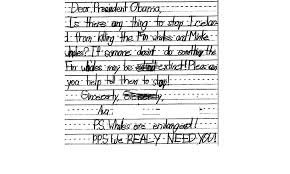 Dear, President Obama,
Is there any thing to stop Icelan-
d from killing the Fin whales and Minke
whales? If someone doesn't do something the
Fin whales may be extinct! Please can
you help tell them to stop!
Sincerely,
P.S. Whales are endangerd!
P.P.S We REALY NEED YOU!